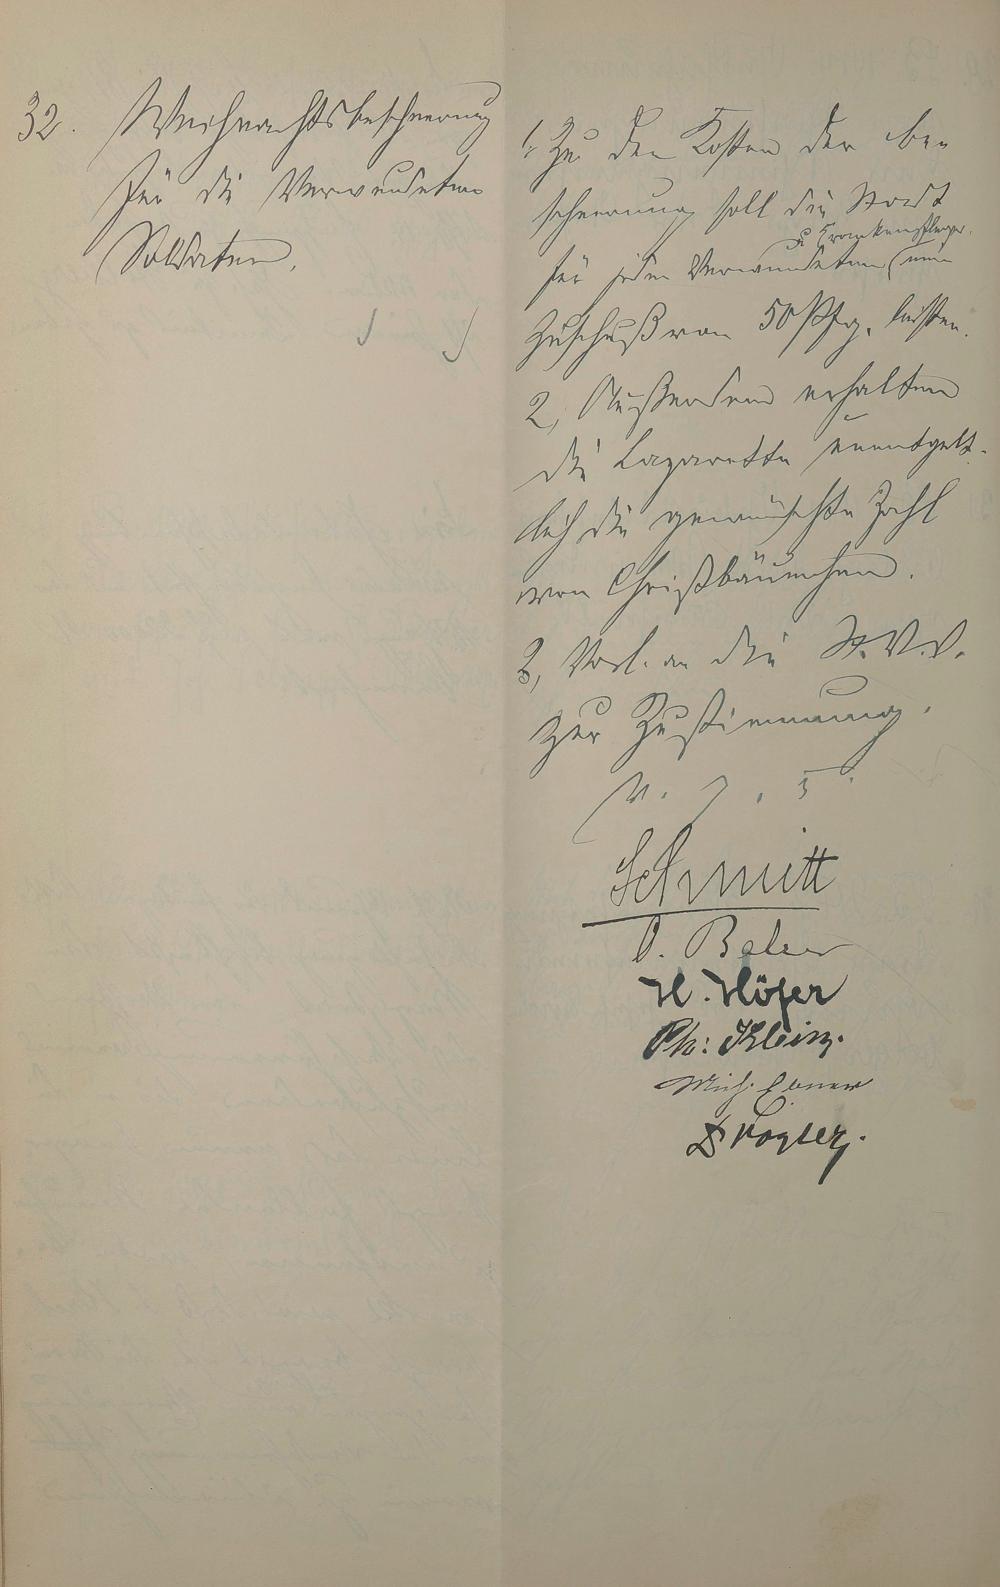 32. Weihnachtsbescheerung
für die Verwundeten
Soldaten.
1, Zu den Kosten der
scheerung soll die Stadt
u. Krankenpfleger
für jeden Verwundeten
Zuschuß von 50 Pfg. leisten.
2, Außerdem erhalten
die Lazarette unentgelt-
lich die gewünschte Zahl
von Christbäumchen.
3, Vorl. an die St.V.V.
zur Zustimmung.
Schmitt
H. Höfer
Ph: Klein.
Mich.
Vogler.